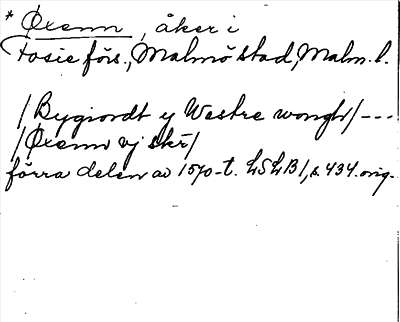 * Øxenn, åker i
Fosie förs., Malmö stad, Malm. l.
/Bygiordt y Westre wongh/---
/Øxenn vj skr/
förra delen av 1570-t. LSLB1, s. 434. orig.